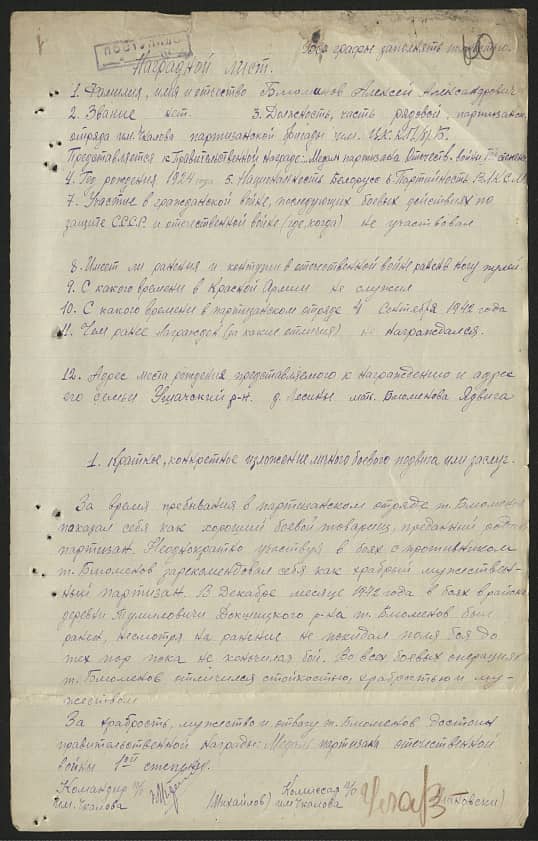 ПОСТУПИЛО
60
(Все графы заполнять полностью.)
Наградной лист.
1. Фамилия, имя и отчество Блюменов Алексей Александрович
2. Звание нет. 3. Должность, часть рядовой, партизан.
отряда им. Чкалова партизанской бригады им. ЦК КП/б/Б.
Представляется к Правительственной Награде: Медаль партизана Отечеств. войны 1ой степени
4. Год рождения 1924 года 5. Национальность Белорус 6. Партийность В.Л.К.С.М.
7. Участие в гражданской войне, последующих боевых действиях по
защите С.С.С.Р. и отечественной войне (где, когда) не участвовал
8. Имеет ли ранения и контузии в отечественной войне ранен в ногу пулей
9. С какого времени в Красной Армии не служил
10. С какого времени в партизанском отряде 4 Сентября 1942 года
11. Чем ранее награжден (за какие отличия) не награждался.
12. Адрес места рождения представляемого к награждению и адрес
его семьи Ушачский р-н. д. мать Блюменова Ядвига
1. Краткое, конкретное изложение личного боевого подвига или заслуг.
За время пребывания в партизанском отряде т. Блюменов
показал себя как хороший боевой товарищ, преданный
партизан. Неоднократно участвуя в боях с противником
т. Блюменов зарекомендовал себя как храбрый мужествен-
ный партизан. В Декабре месяце 1942 года в боях в районе
деревни Тумиловичи Докшицкого р-на т. Блюменов был
ранен, несмотря на ранение не покидал поля боя до
тех пор пока не кончился бой. Во всех боевых операциях
т. Блюменов отличился стойкостью, храбростью и му-
жеством
За храбрость, мужество и отвагу т. Блюменов достоин
правительственной Награды: Медаль партизана отечественной
войны 1ой степени.
Командир п/о Комиссар п/о
им. Чкалова (Михайлов) им. Чкалова